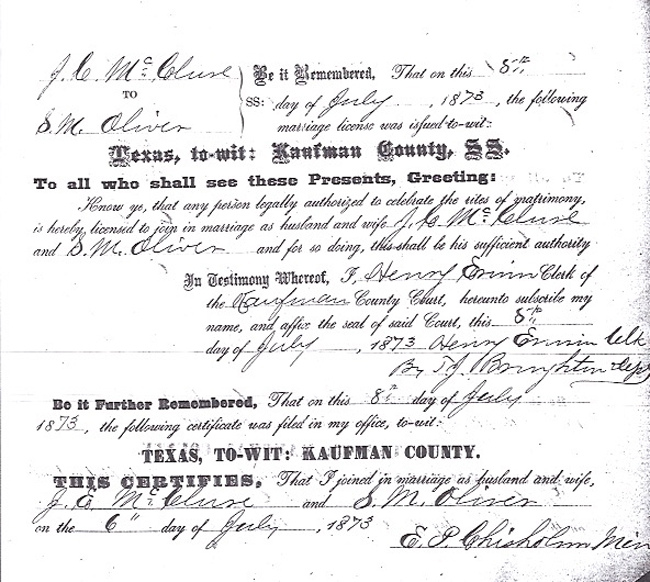 J. C. McCluse
TO
S. M. Oliver
SS:
Be it Remembered, That on this 8th
day of July, 1873, the following
marriage license was issued to-wit:
Texas, to-wit: Kaufman County, SS.
To all who shall see these Presents, Greeting:
Know ye, that any person legally authorized to celebrate the rites of matrimony,
is hereby licensid to join in marriage as husband and wife J. C. McCluse
and S. M. Oliver and for so doing, this shall be his sufficient authority
In Testimony Whereof, I, Henry Clerk of
the Kaufman County Court, hereunto subscribe my
name, and affice the seal of said Court, this 8th
day of July, 1873 Henry Clk
By T. J. Broughton Depy
Be it Further Remembered, That on this 8th day of July
1873, the following certificate was filed in my office, to-wit:
TEXAS, TO-WIT: KAUFMAN COUNTY.
THIS CERTIFIES, That I joined in marriage as husband and wife,
J. E. McCluse and S. M. Oliver
on the 6" day of July, 1873
E. P. Chisholm Min